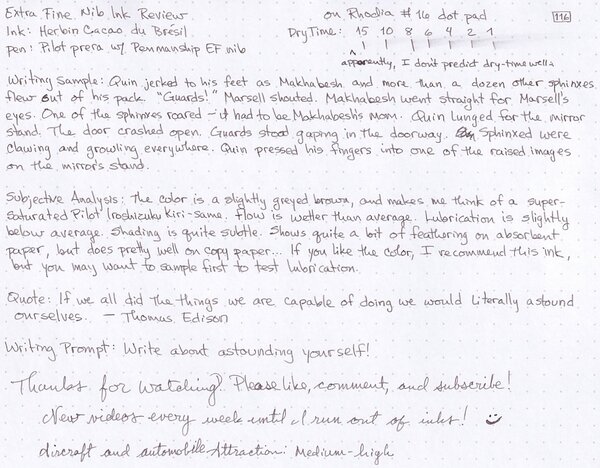 Extra Fine Nib Ink Review on Rhodia #16 dot pad 116
Ink: Herbin Cacao du Brésil Dry Time: 15 10 8 6 4 2 1
pen: Pilot prera w/ Penmanship EF nib apparently, I don't predict dry-time well.
Writing Sample: Quin jerked to his feet as Makhabesh and more than a dozen other sphinxes
flew out of his pack. "Guards!" Marsell shouted. Makhabesh went straight for Marsell's
eyes. One of the sphinxes roared – it had to be Makhabesh's mom. Quin lunged for the mirror
stand. The door crashed open. Guards stood gaping in the doorway. Sphinxed were
clawing and growling everywhere. Quin pressed his fingers into one of the raised images
on the mirror's stand.
Subjective Analysis: the color is a slightly greyed brown, and makes me think of a super-
saturated Pilot Iroshizuku Kiri-same. flow is wetter than average. Lubrication is slightly
below average. Shading is quite subtle. Shows quite a bit of feathering on absorbent
paper, but does pretty well on copy paper... If you like the color, I recommend this ink,
but you may want to sample first to test lubrication.
Quote: If we all did the things we are capable of doing we would literally astound
ourselves. — Thomas Edison
Writing Prompt: Write about astounding yourself!
Thanks for watching? Please like, comment, and subscribe!
New videos every week until I run out of inks!
aircraft and automobile Attraction: Medium-high